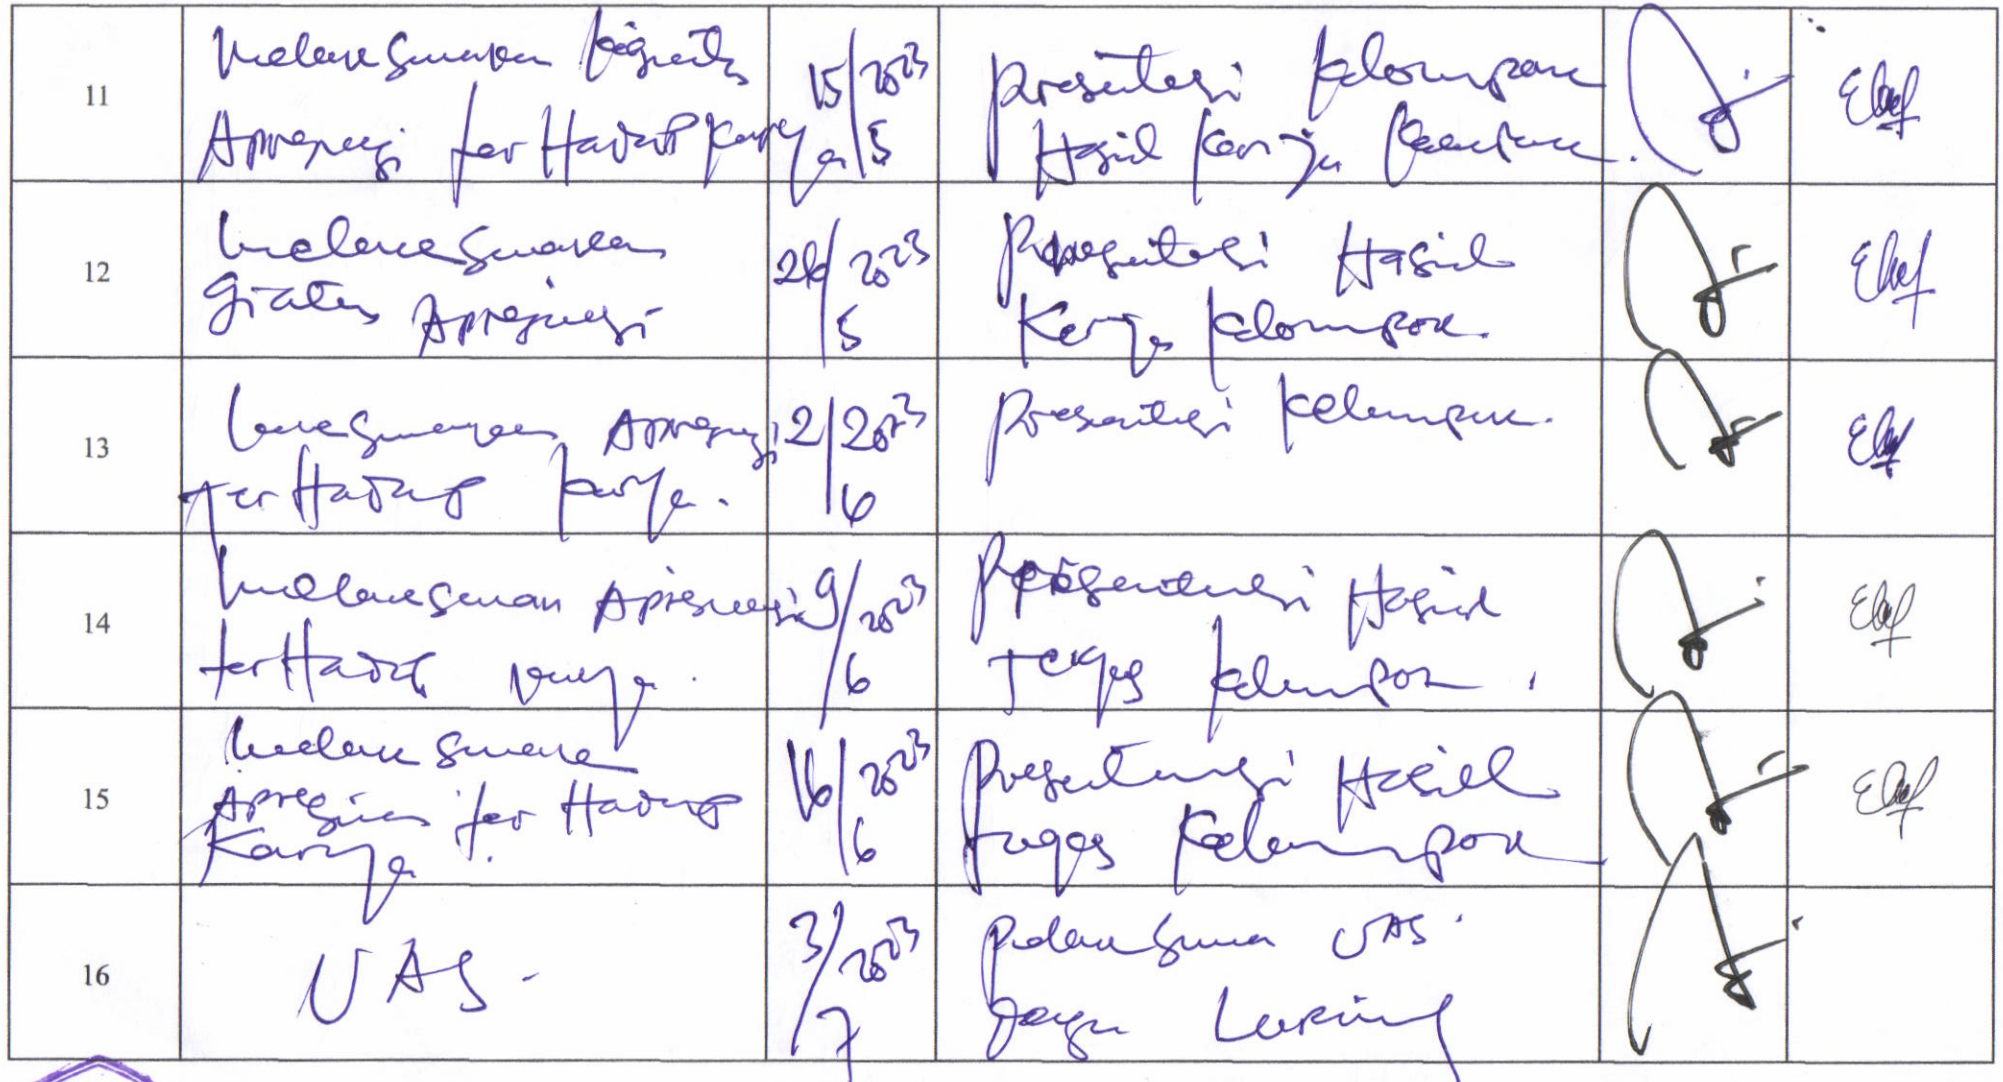 11
Melaksanakan kegiatan
Apresiasi terHadap Karya
15/2023
5
Presentasi kelompok
Hasil
12
Melaksanakan
Apresiasi
26/2023
5
Presentasi Hasil
Kerja kelompok.
13
Apresiasi
terHadap karya.
2/2023
6
Presentasi kelompok.
14
Melaksanakan Apresiasi
terHadap karya.
9/2023
6
Presentasi Hasil
Tugas kelompok.
15
Melaksanakan
Apresiasi terHadap
Karya
16/2023
6
Presentasi Hasil
tugas Kelompok
16
UAS.
3/2023
7
UAS
Luring